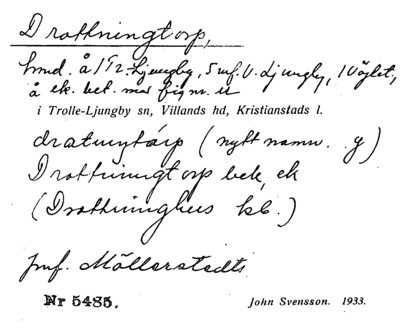 Drottningtorp,
hmd. å 1 T.-Ljungby, 5 uf. V. Ljungby, 1 Vöglet,
å ek. bet. med fig nr. u
i Trolle-Ljungby sn, Villands hd, Kristianstads l.
(nytt namn. g)
Drottningtorp bek, ek
(Drottninghus kb.)
jmf. Möllerstedts
Nr 5485.
John Svensson. 1933.